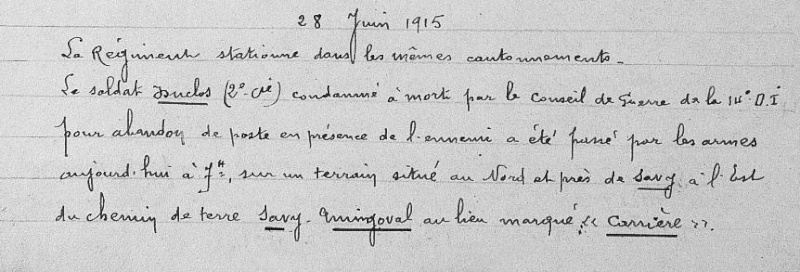 28 Juin 1915
Le Régiment stationne dans les mêmes cantonnements -
Le soldat Duclos (2e Cie) condamné à mort par le Conseil de Guerre de la 14e D.I
pour abandon de poste en présence de l'ennemi a été passé par les armes
aujourd'hui à 7H, sur un terrain situé au Nord et près de Savy, à l'Est
du chemin de terre Savy-Aningoval au lieu marqué : << Carrière >>.